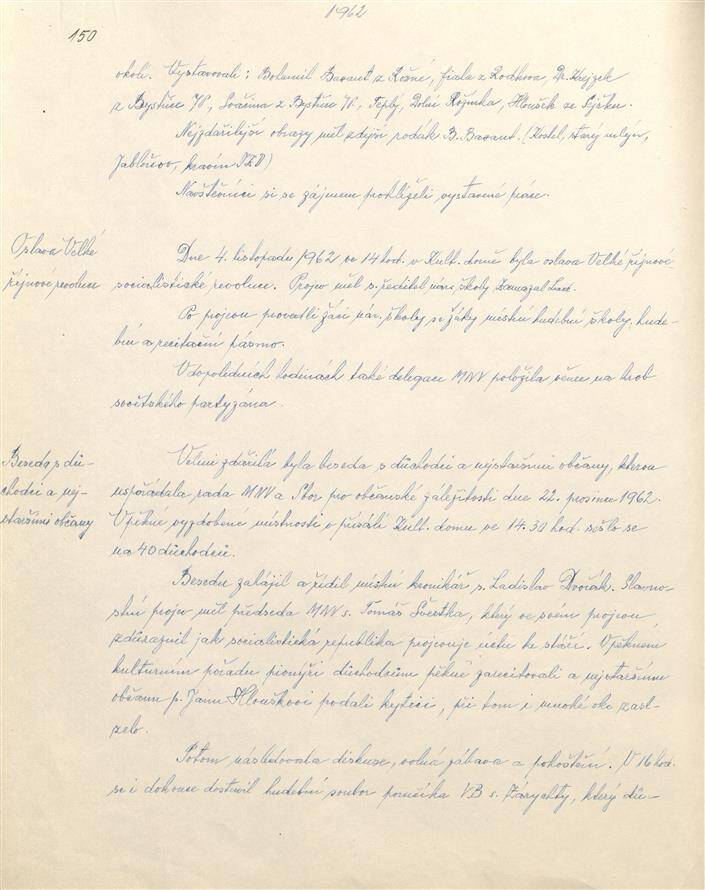 1962
150
okolí. Vystavovali: Bohumil Bavant z Rožné, Fiala z Rodkova, Dr. Krejzek
z Bystřice n/P., Sváčina z Bystřice n/P., Teplý, Dolní Rožínka, Hloušek ze Sejřku.
Nejzdařilejší obrazy měl zdejší rodák B. Bavant. (Kostel, starý mlýn,
Jabloňov, kravín JZD)
Navštěvníci si se zájmem prohlíželi vystavené práce.
Oslava Velké
říjnové revoluce
Dne 4. listopadu 1962 ve 14 hod. v Kult. domě byla oslava Velké říjnové
socialistické revoluce. Projev měl s. ředitel nár. školy Zamazal Lud.
Po projevu provedli žáci nár. školy se žáky místní hudební školy, hude-
bní a recitační pásmo.
V dopoledních hodinách také delegace MNV položila věnce na hrob
sovětského partyzána.
Beseda s dů-
chodci a nej-
staršími občany
Velmi zdařilá byla beseda s důchodci a nejstaršími občany, kterou
uspořádala rada MNV a Sbor pro občanské záležitosti dne 22. prosince 1962.
V pěkně vyzdobené místnosti v přísálí Kult. domu ve 14.30 hod. sešlo se
na 40 důchodců.
Besedu zahájil a řídil místní kronikář s. Ladislav Dvořák. Slavno-
stní projev měl předseda MNV s. Tomáš Švestka, který ve svém projevu
zdůraznil jak socialistická republika projevuje úctu ke stáří. V pěkném
kulturním pořadu pionýři důchodcům pěkně zarecitovali a nejstaršímu
občanu p. Janu Hlouškovi podali kytici, při tom i mnohé oko zasl-
zelo.
Potom následovala diskuze, volná zábava a pohoštění. V 16 hod.
se i dokonce dostavil hudební soubor poručíka VB s. Zárychty, který dů-